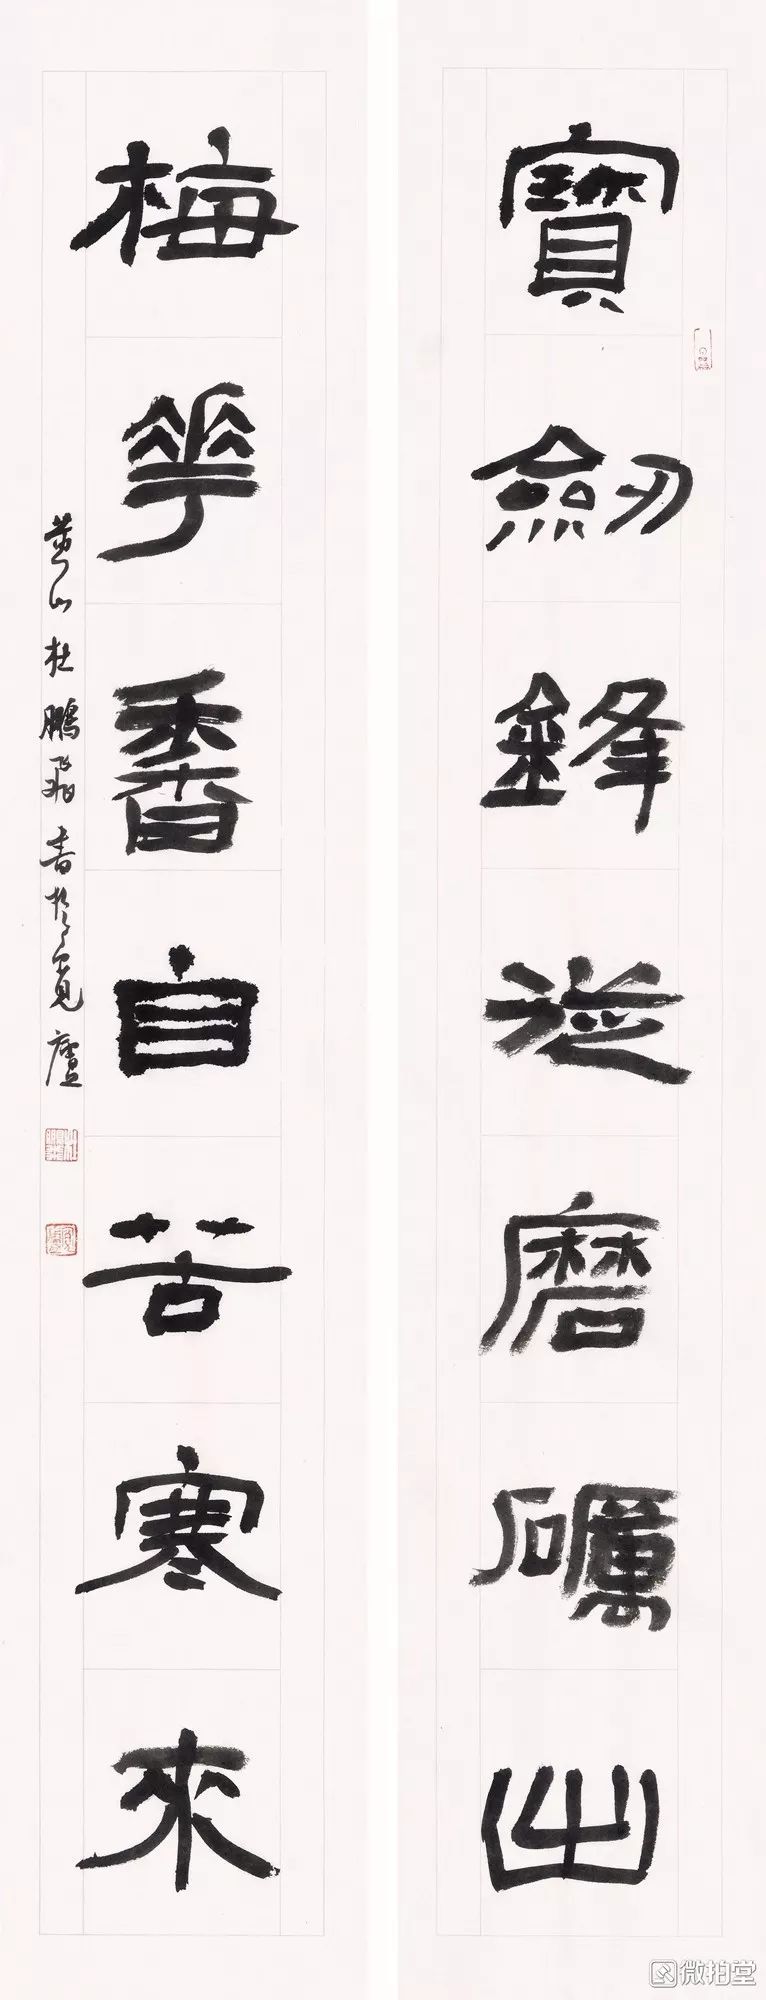 寶劒鋒從磨礪出
梅華香自苦寒來
黄山杜鵬飛書於寬廬
微拍堂